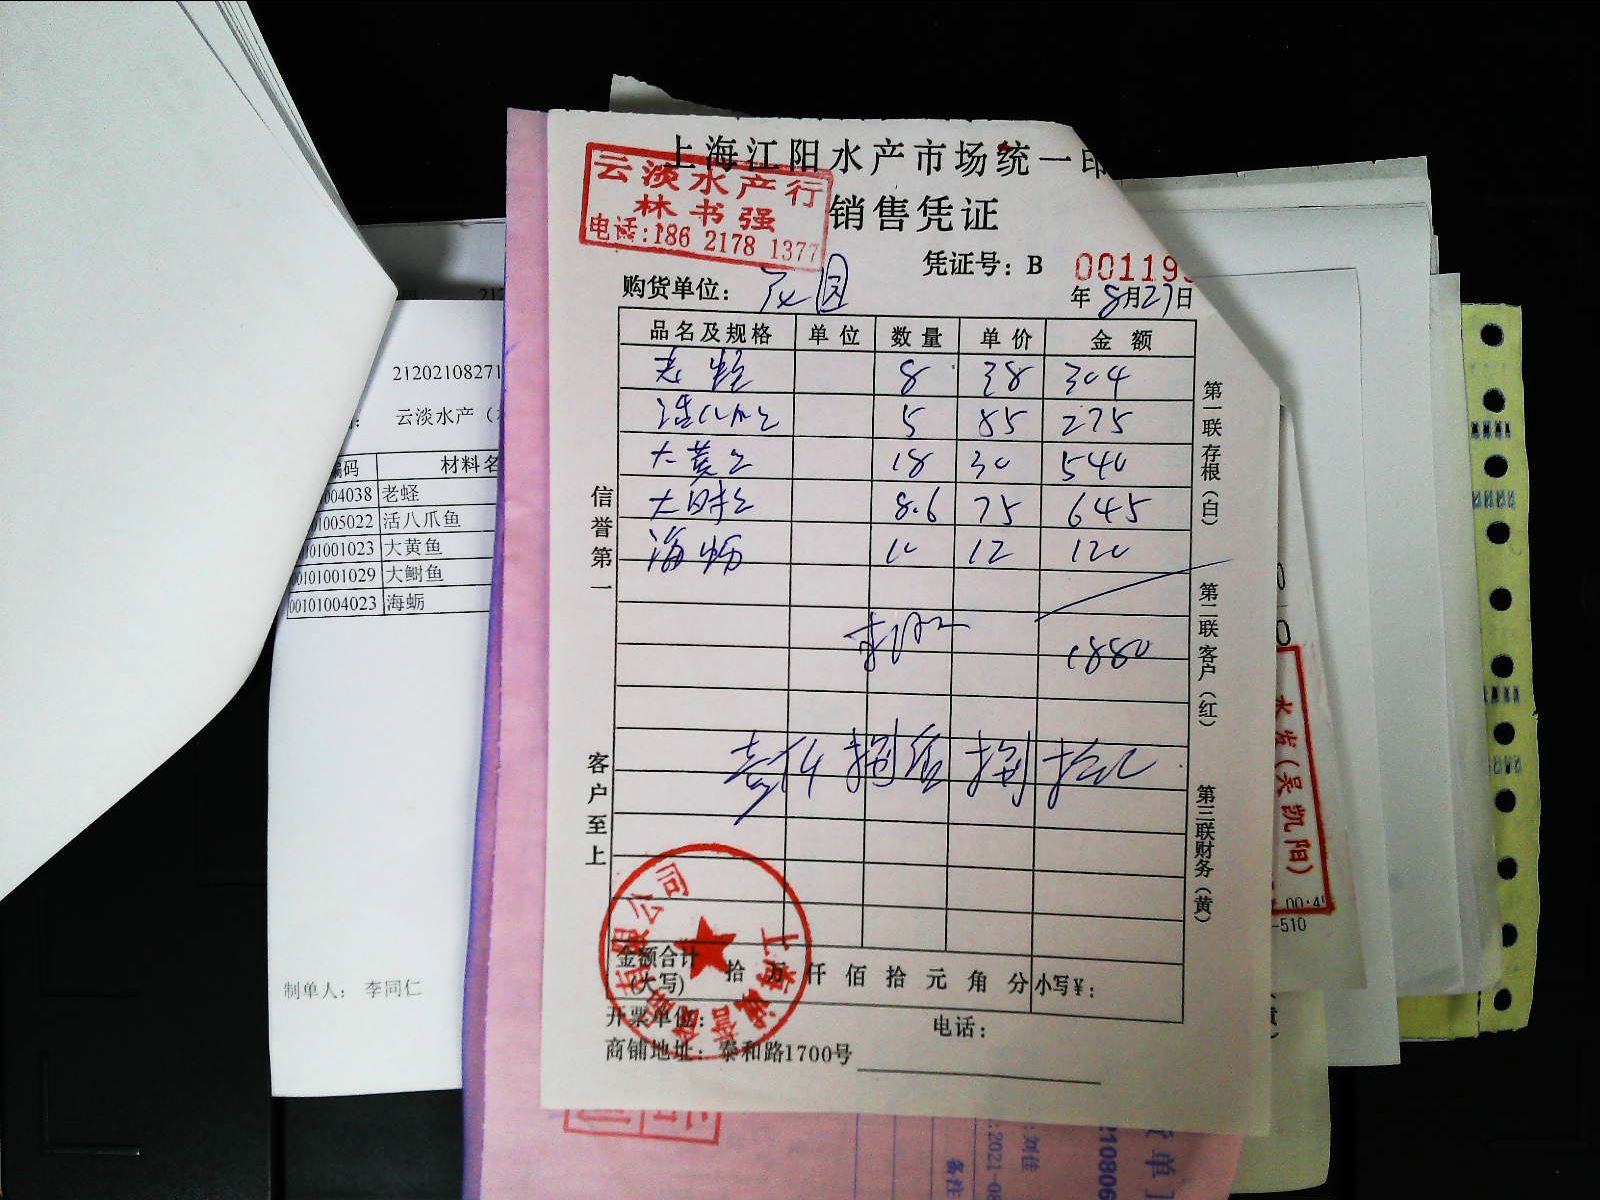 上海江阳水产市场统一印
云淡水产行
林书强
电话:186 2178 1377
销售凭证
凭证号：B 00119
购货单位：
年8月27日
品名及规格 单位 数量 单价 金额
老蛏 8 38 304
活八爪鱼 5 85 275
大黄鱼 18 30 540
大鲥鱼 8.6 75 645
海蛎 10 12 120
1880
壹仟捌佰捌拾元
信誉第一
客户至上
第一联存根（白）
第二联客户（红）
第三联财务（黄）
金额合计(大写) 拾万仟佰拾元角分 小写¥：
开票单位：
电话：
商铺地址：泰和路1700号
有限公司
上海诚誉
21202108271
云淡水产（
编码 材料名
004038 老蛏
01005022 活八爪鱼
0101001023 大黄鱼
00101001029 大鲥鱼
00101004023 海蛎
制单人： 李同仁
水发(吴凯阳)
00:4
-510
:刘佳
:2021-08
备注
210806
货单